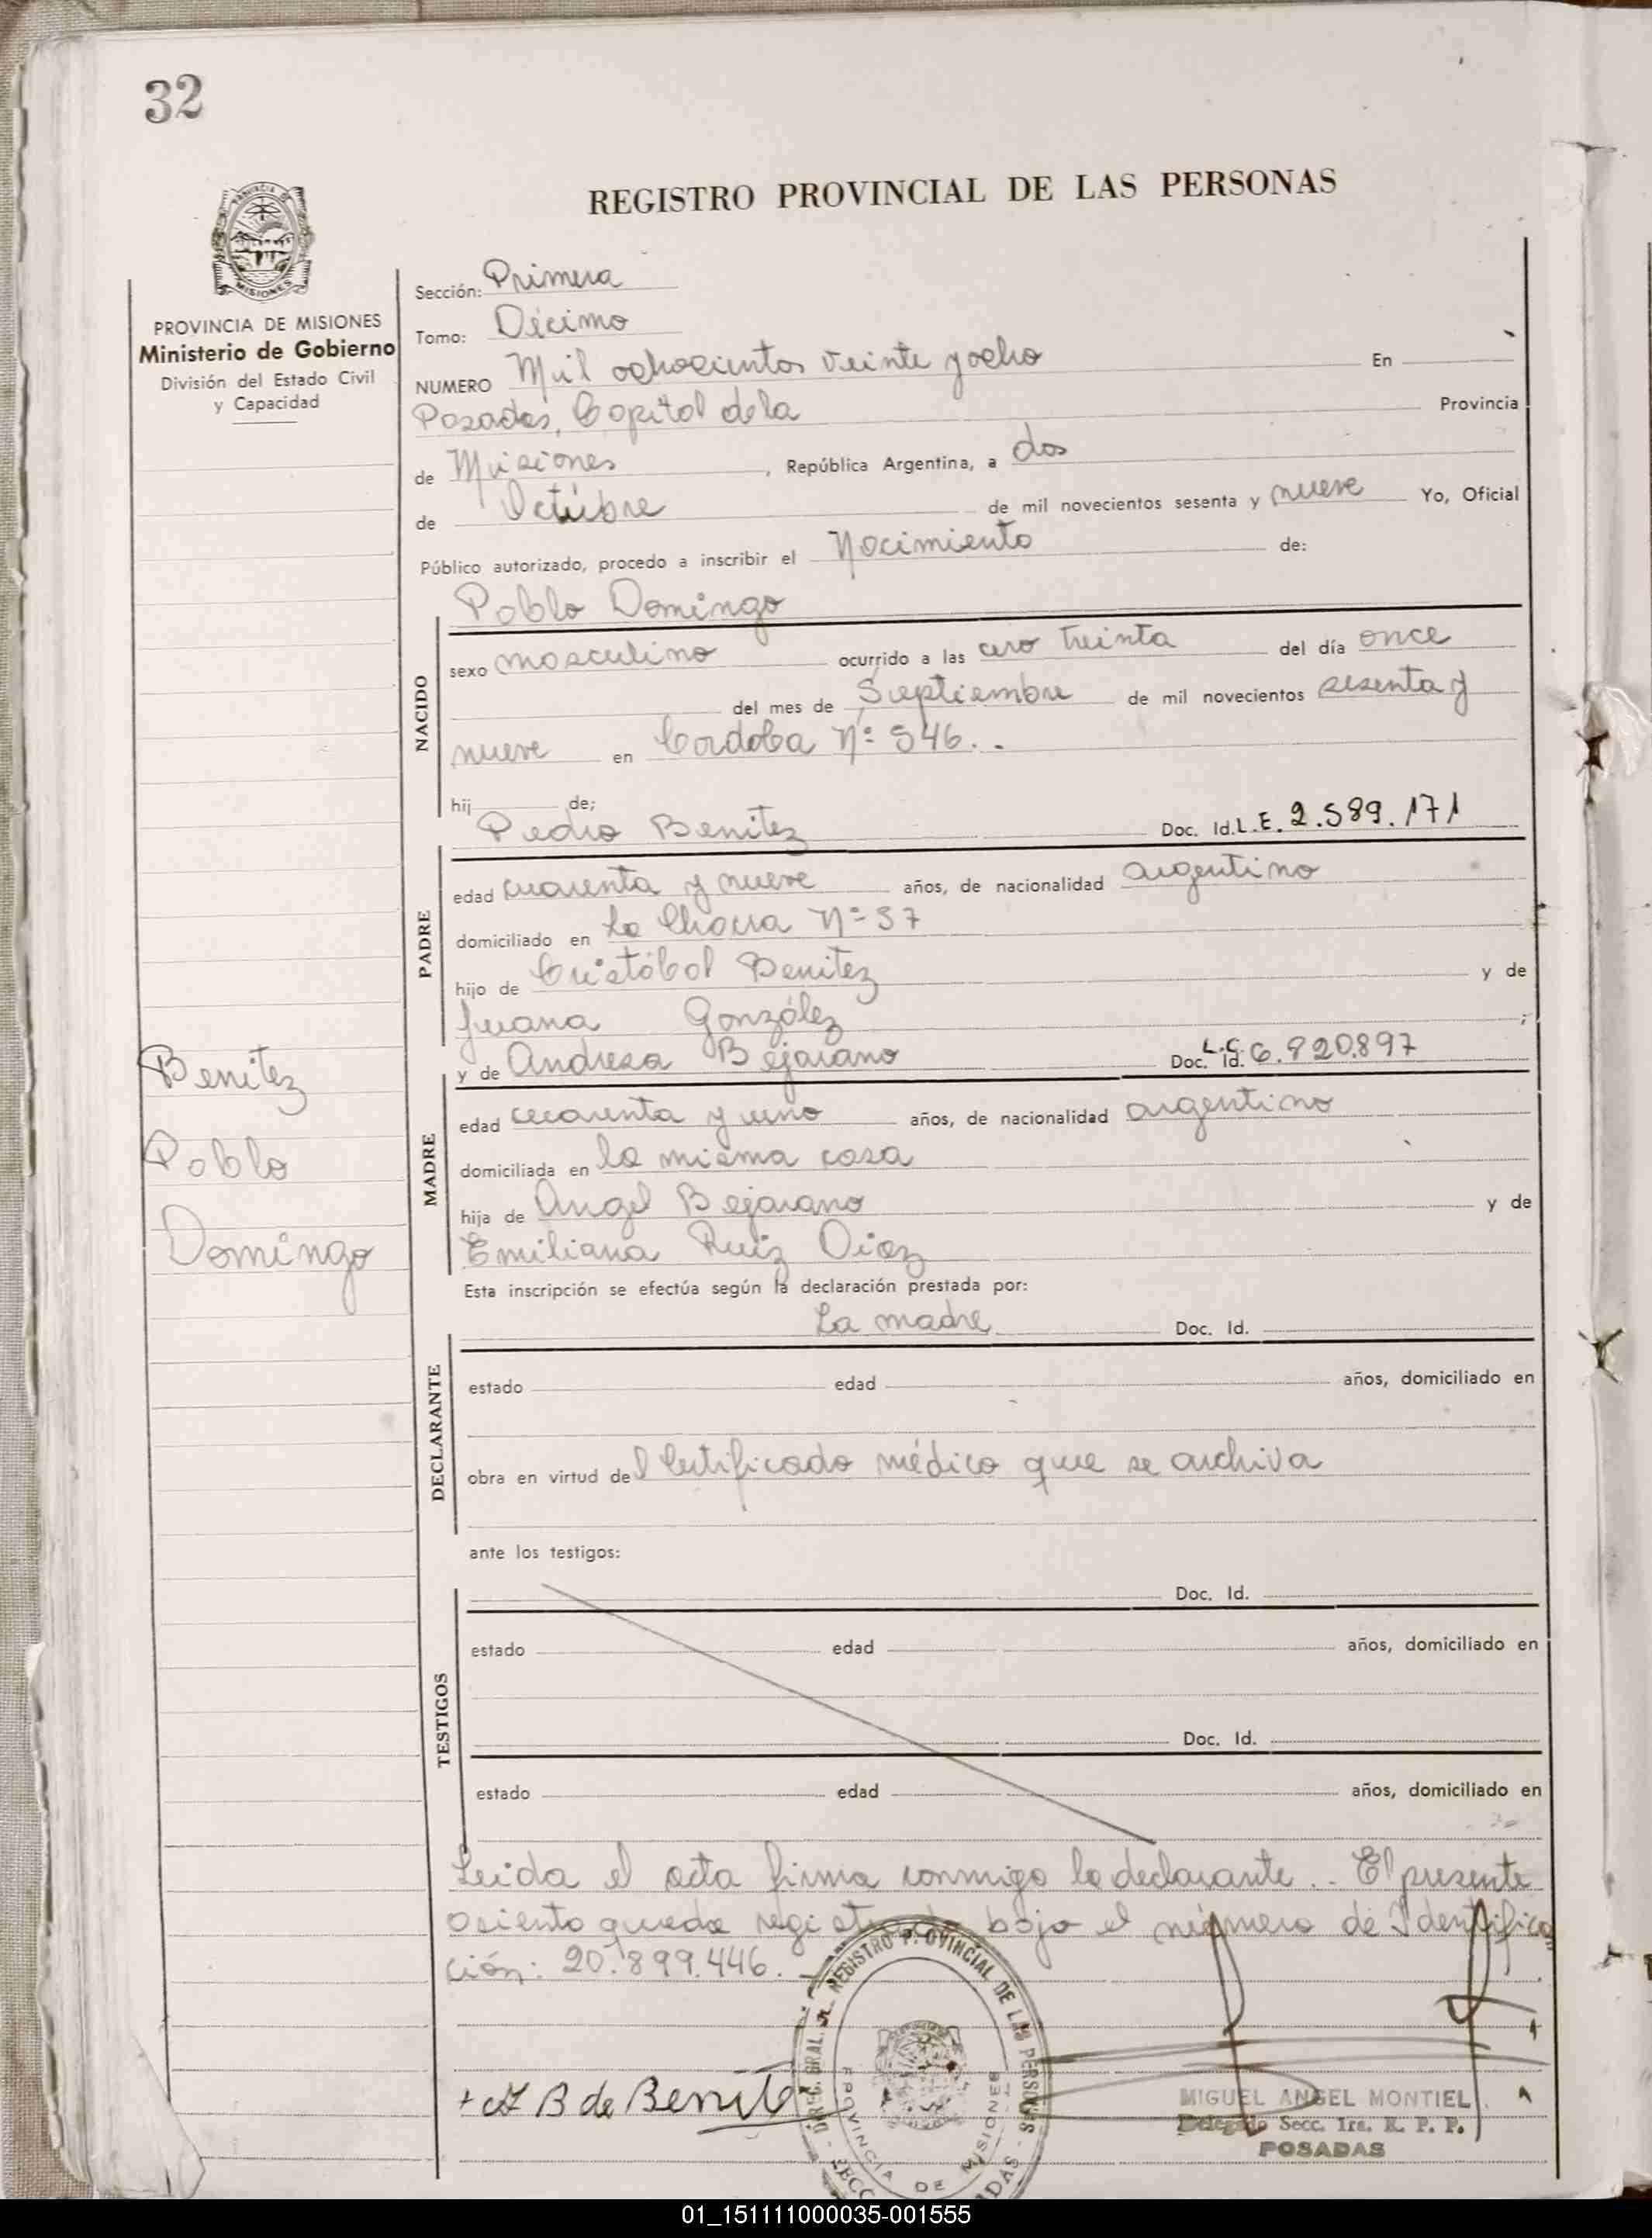 32
REGISTRO PROVINCIAL DE LAS PERSONAS
PROVINCIA DE MISIONES
Ministerio de Gobierno
División del Estado Civil
y Capacidad
Sección: Primera
Tomo: Décimo
NUMERO Mil ochocientos veinte y ocho En
Posadas, Capital de la Provincia
de Misiones, República Argentina, a dos
de Octubre de mil novecientos sesenta y nueve Yo, Oficial
Público autorizado, procedo a inscribir el Nacimiento de:
Pablo Domingo
NACIDO
sexo masculino ocurrido a las cero treinta del día once
del mes de Septiembre de mil novecientos sesenta y
nueve en Cordoba Nº 546..
hij de;
Pedro Benitez Doc. Id. L.E. 2.589.171
PADRE
edad cuarenta y nueve años, de nacionalidad argentino
domiciliado en La Chacra Nº 37
hijo de Cristóbal Benitez y de
Juana González ;
y de Andresa Bejarano Doc. Id. L.C. 6.820.897
MADRE
edad cuarenta y uno años, de nacionalidad argentino
domiciliada en la misma casa
hija de Angel Bejarano y de
Emiliana Ruiz Diaz
Benitez
Pablo
Domingo
Esta inscripción se efectúa según la declaración prestada por:
La madre Doc. Id.
DECLARANTE
estado edad años, domiciliado en
obra en virtud del Certificado médico que se archiva
ante los testigos:
Doc. Id.
TESTIGOS
estado edad años, domiciliado en
Doc. Id.
estado edad años, domiciliado en
Leida el acta firma conmigo la declarante.. El presente
asiento queda registrado bajo el número de Identifica
ción: 20.899.446.
+ A B de Benitez
DIREC. GRAL. REGISTRO PROVINCIAL DE LAS PERSONAS
PROVINCIA DE MISIONES
MIGUEL ANGEL MONTIEL
Delegado Secc. 1ra. R. P. P.
POSADAS
01_151111000035-001555